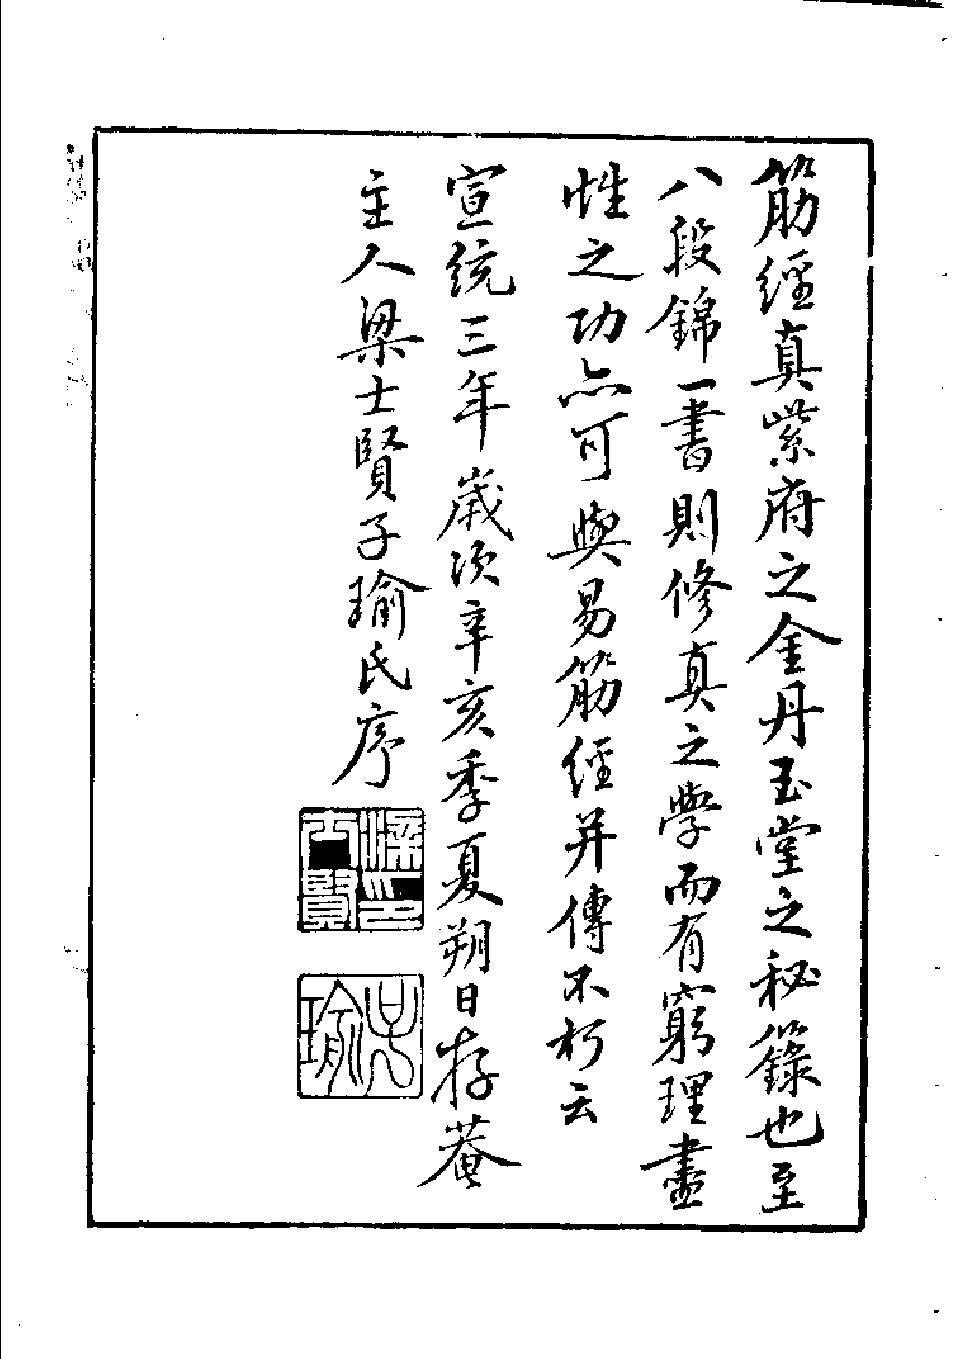 筋經真紫府之金丹玉堂之秘籙也至
八段錦一書則修真之學而有窮理盡
性之功亦可與易筋經并傳不朽云
宣統三年歲次辛亥季夏朔日存菴
主人梁士賢子瑜氏序
梁士賢印
子瑜